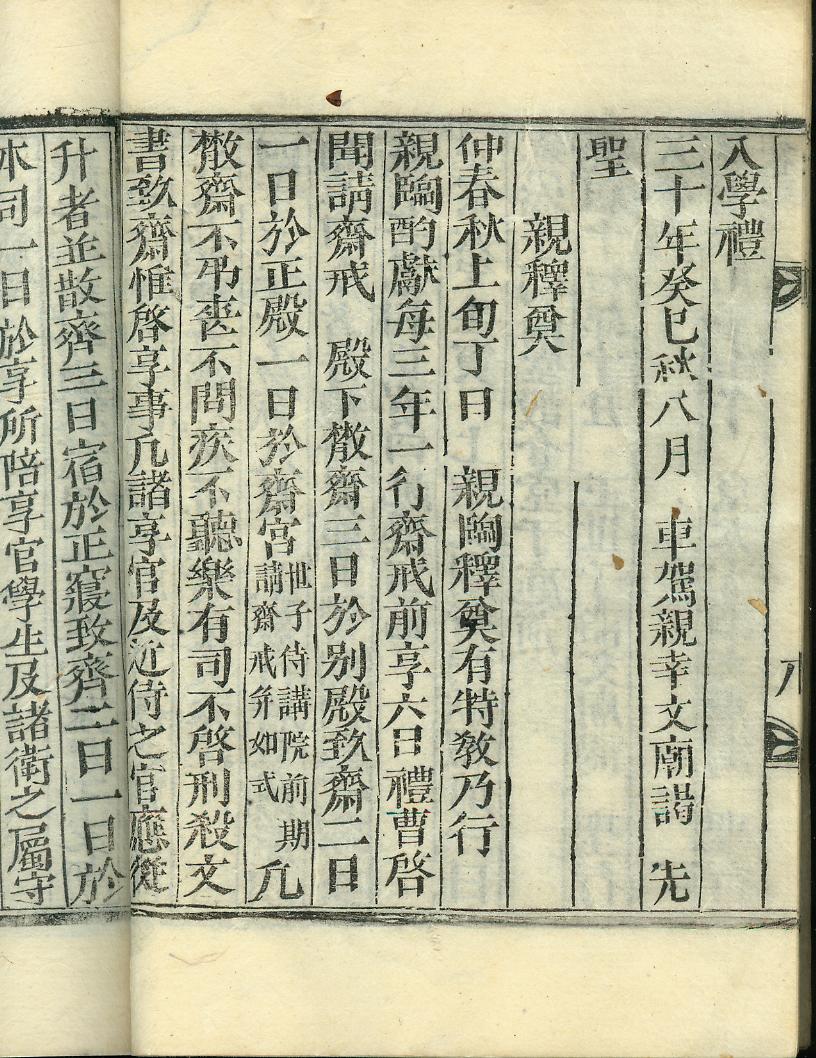 入學禮
三十年癸巳秋八月 車駕親幸文廟謁 先
聖
親釋奠
仲春秋上旬丁日 親臨釋奠有特敎乃行
親臨酌獻每三年一行齋戒前享六日禮曹啓
聞請齋戒 殿下散齋三日於別殿致齋二日
一日於正殿一日於齋宮世子侍講院前期請齋戒並如式凡
散齋不吊喪不問疾不聽樂有司不啓刑殺文
書致齋惟啓享事凡諸享官及近侍之官應從
升者並散齊三日宿於正寢致齊二日一日於
本司一日於享所陪享官學生及諸衛之屬守
八